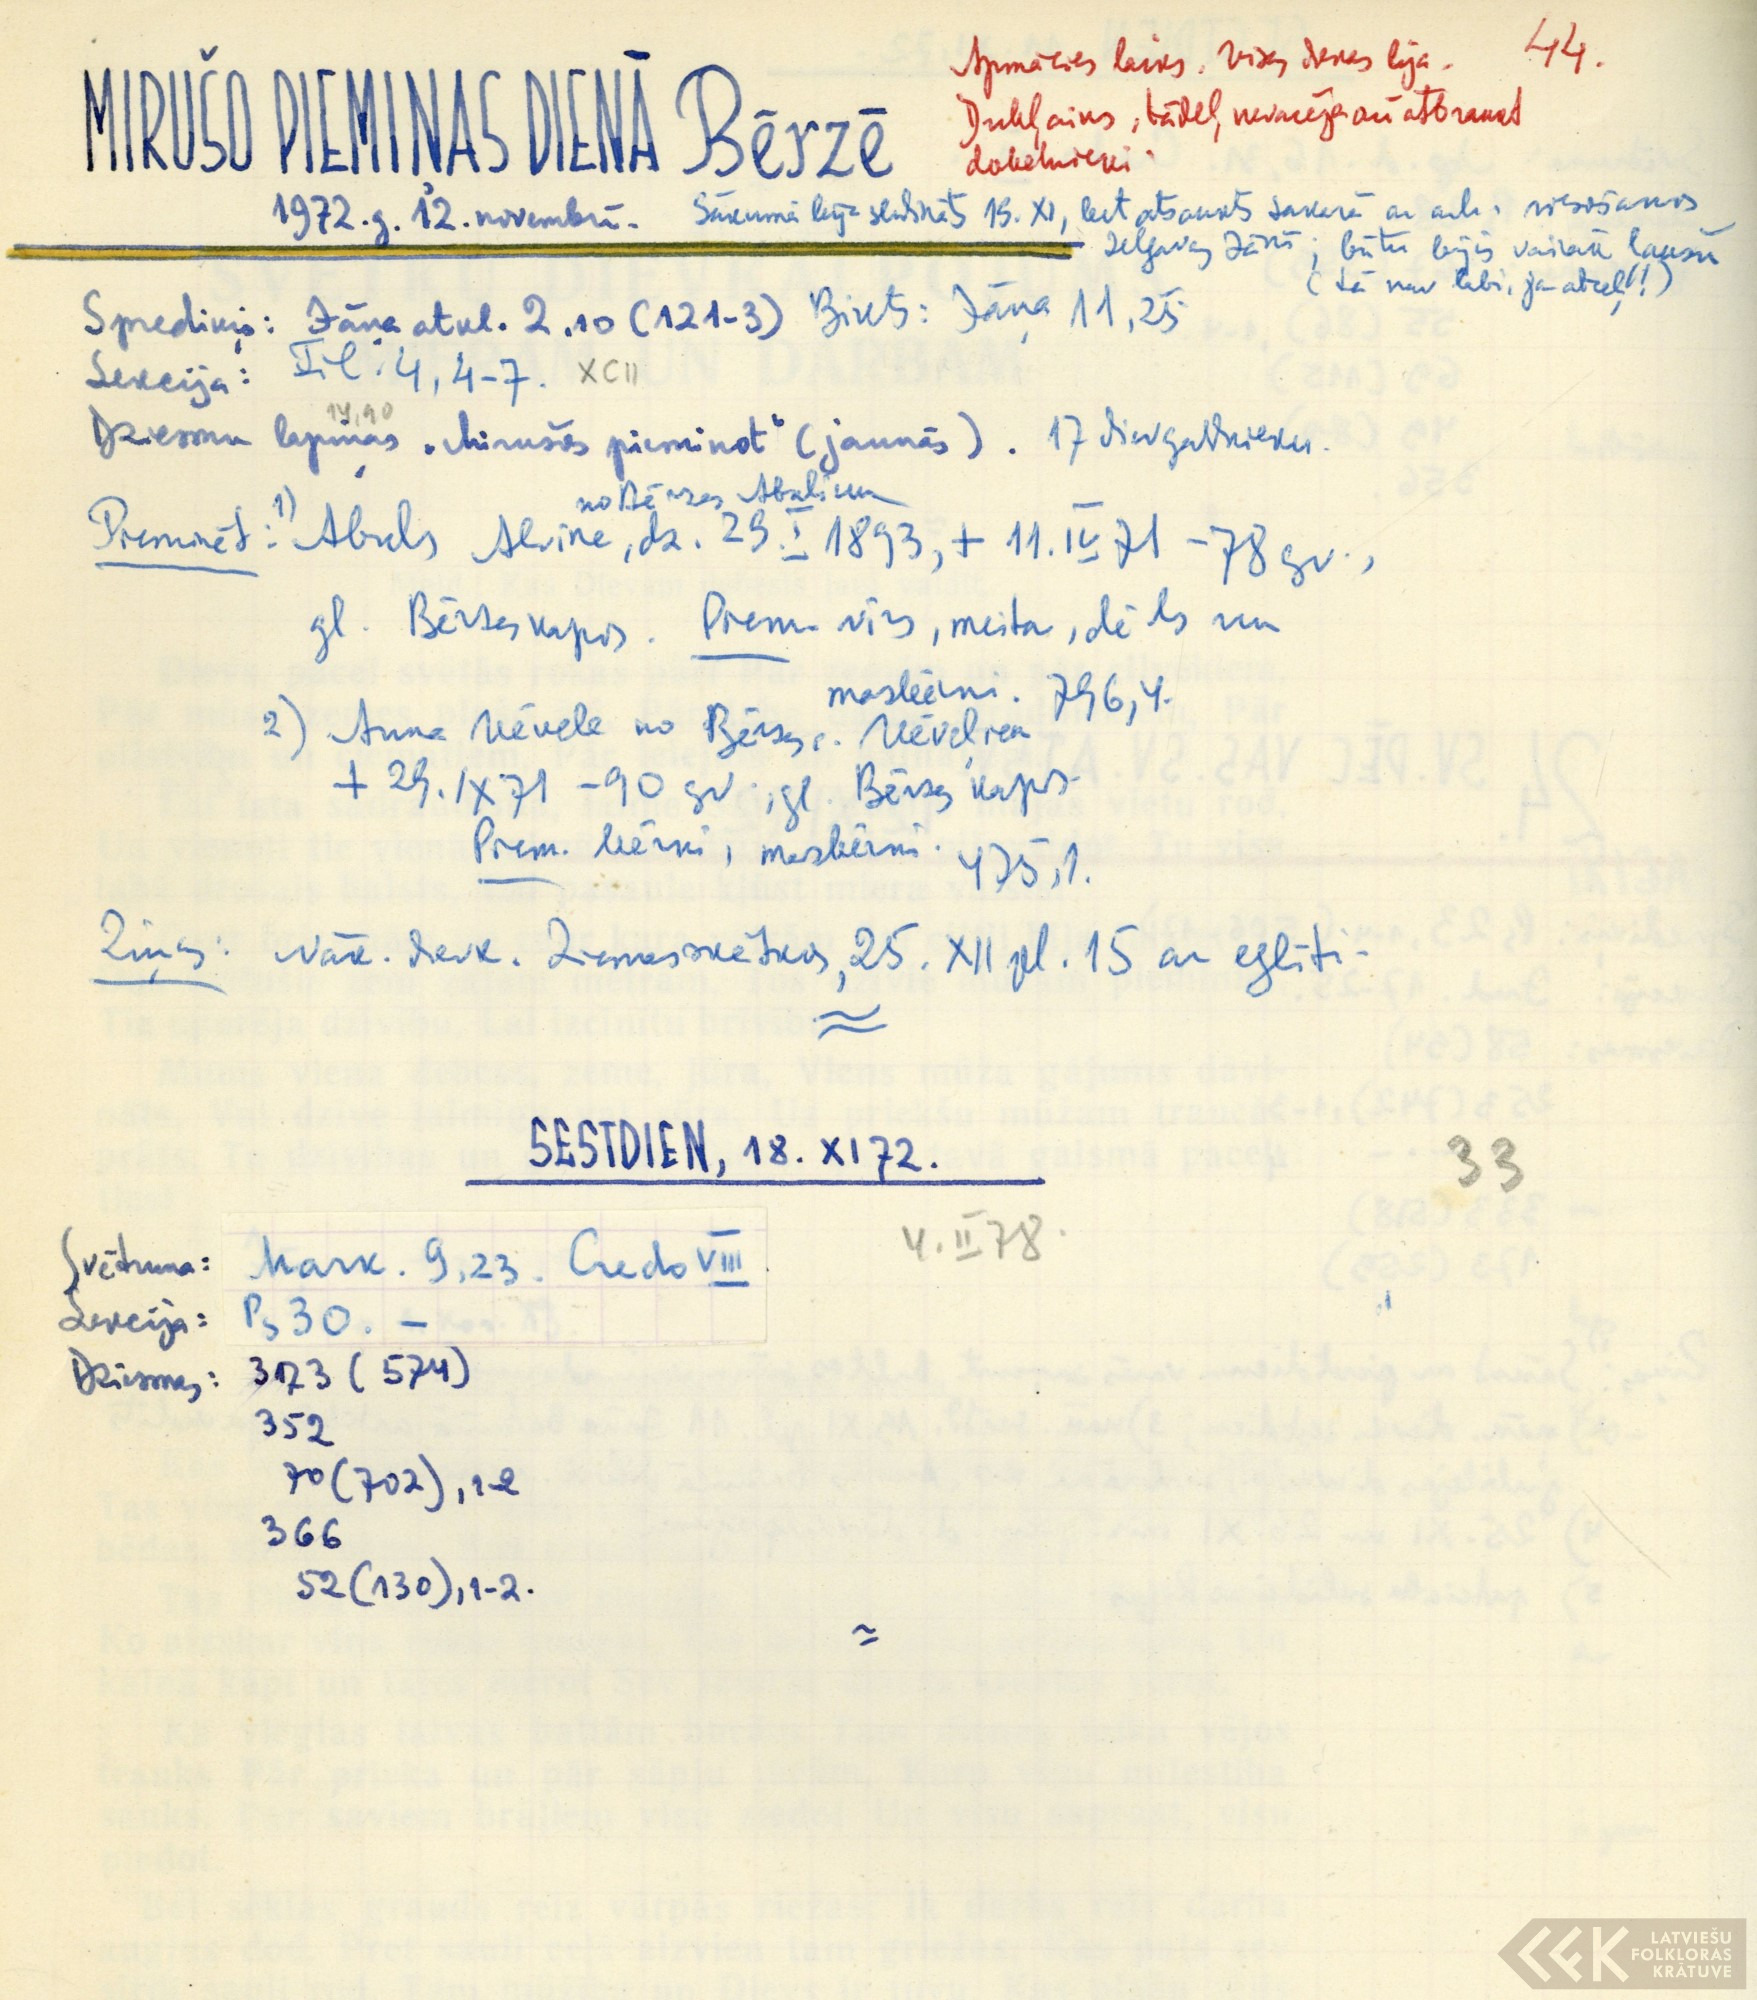 MIRUŠO PIEMIŅAS DIENĀ Bērzē
1972.g. 12. novembrī.
Apmācies laiks. Visas dienas lija. 44.
Dubļains, tādēļ nevarēja arī atbraukt
dobelnieki.
Sākumā bija sludināts 19. XI, bet atsaukts sakarā ar arh. viesošanos
Jelgavas Jānī; būtu bijis vairāk ļaužu
(tā nav labi, ja atceļ!!)
Sprediķis: Jāņa atkl. 2,10 (121-3) Bikts: Jāņa 11,25
Lekcija: Fil. 4, 4-7. XCII
14,90
Dziesmu lapiņas „Mirušos pieminot" (jaunās). 17 dievgaldnieku.
no Bērzes Abuliem
Pieminēt: 1) Abuls Alvine, dz. 29. I 1893, + 11. IV 71 - 78 gv.,
gl. Bērzes kapos. Piem. vīrs, meita, dēls un
mazbērni. 796,4.
2) Anna Ķēvele no Bērzes Ķēveliem
+ 29. IX 71 - 90 gv., gl. Bērzes kapos.
Piem. bērni, mazbērni. 475,1.
Ziņas: Nāk. dievk. Ziemassvētkos, 25. XII pl. 15 ar eglīti.
≈
SESTDIEN, 18. XI 72.
33
4. II 78.
Svētruna: Mark. 9,23. Credo VIII
Lekcija: Ps 30. -
Dziesmas: 3173 (574)
352
70 (702), 1-2
366
52 (130), 1-2.
≈
LATVIEŠU
FOLKLORAS
KRĀTUVE